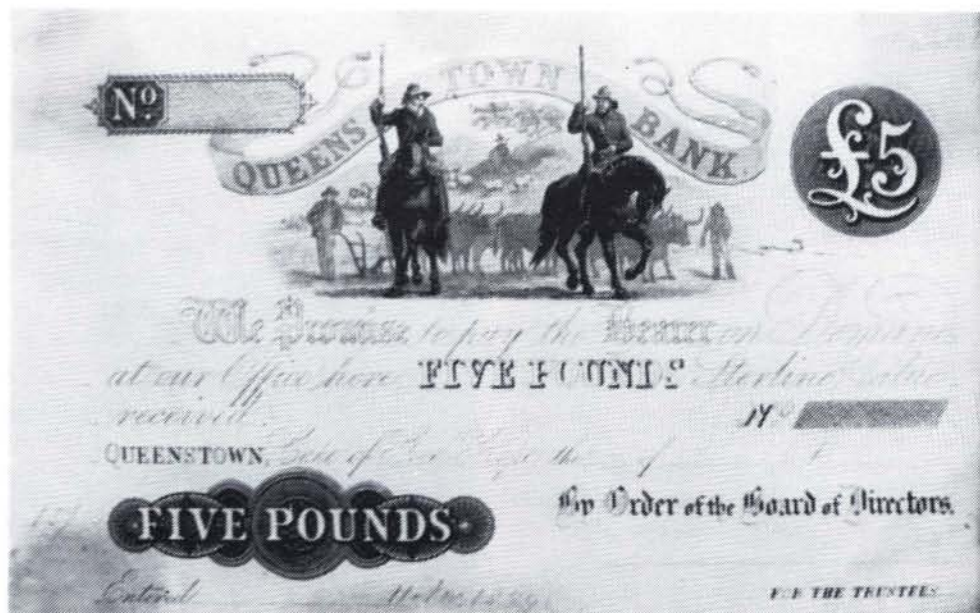 No.
QUEENS TOWN BANK.
£5
We Promise to pay the Bearer on Demand
at our Office here FIVE POUNDS Sterling value
received.
QUEENSTOWN, Cape of Good Hope the of
FIVE POUNDS
By Order of the Board of Directors.
Entered
FOR THE TRUSTEES